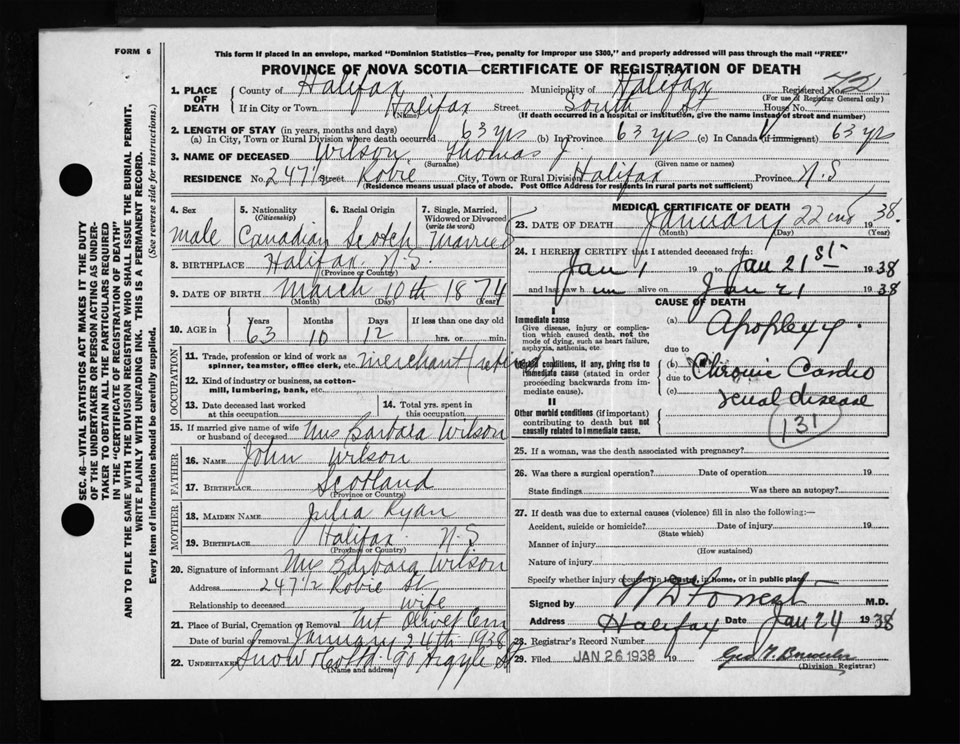 FORM 6
This form if placed in an envelope, marked "Dominion Statistics—Free, penalty for improper use $300," and properly addressed will pass through the mail "FREE"
PROVINCE OF NOVA SCOTIA—CERTIFICATE OF REGISTRATION OF DEATH
1. PLACE OF DEATH
County of Halifax Municipality of Halifax Registered No. 42
(For use of Registrar General only)
If in City or Town Halifax Street South St House No.
(Name) (If death occurred in a hospital or institution, give the name instead of street and number)
2. LENGTH OF STAY (in years, months and days)
(a) In City, Town or Rural Division where death occurred 63 yrs (b) In Province 63 yrs (c) In Canada (if immigrant) 63 yrs
3. NAME OF DECEASED Wilson, Thomas J.
(Surname) (Given name or names)
RESIDENCE No. 247 1/2 Street Robie City, Town or Rural Division Halifax Province N.S
(Residence means usual place of abode. Post Office Address for residents in rural parts not sufficient)
4. Sex
Male
5. Nationality
(Citizenship)
Canadian
6. Racial Origin
Scotch
7. Single, Married, Widowed or Divorced
(write the word)
Married
8. BIRTHPLACE Halifax. N.S.
(Province or Country)
9. DATE OF BIRTH March 10th 1874
(Month) (Day) (Year)
10. AGE in
Years Months Days If less than one day old
63 10 12 hrs. or min.
OCCUPATION
11. Trade, profession or kind of work as spinner, teamster, office clerk, etc. merchant (retired
12. Kind of industry or business, as cotton-mill, lumbering, bank, etc.
13. Date deceased last worked at this occupation
14. Total yrs. spent in this occupation
15. If married give name of wife or husband of deceased Mrs Barbara Wilson
FATHER
16. NAME John Wilson
17. BIRTHPLACE Scotland
(Province or Country)
MOTHER
18. MAIDEN NAME Julia Ryan
19. BIRTHPLACE Halifax. N.S
(Province or Country)
20. Signature of informant Mrs Barbara Wilson
Address 247 1/2 Robie St
Relationship to deceased wife
21. Place of Burial, Cremation or Removal Mt Olivet Cem
Date of burial or removal January 24th 1938
22. UNDERTAKER Snow & Co Ltd. 90 Argyle St
(Name and address)
MEDICAL CERTIFICATE OF DEATH
23. DATE OF DEATH January 22nd 1938.
(Month) (Day) (Year)
24. I HEREBY CERTIFY that I attended deceased from:
Jan 1 19 to Jan 21st 1938
and last saw him alive on Jan 21 1938
CAUSE OF DEATH
I
Immediate cause
Give disease, injury or complication which caused death, not the mode of dying, such as heart failure, asphyxia, asthenia, etc.
(a) Apoplexy.
due to
Morbid conditions, if any, giving rise to immediate cause (stated in order proceeding backwards from immediate cause).
(b) Chronic Cardio
due to
(c) renal disease
II
Other morbid conditions (if important) contributing to death but not causally related to immediate cause.
131
25. If a woman, was the death associated with pregnancy?
26. Was there a surgical operation? Date of operation 19
State findings Was there an autopsy?
27. If death was due to external causes (violence) fill in also the following:—
Accident, suicide or homicide? Date of injury 19
(State which)
Manner of injury
(How sustained)
Nature of injury
Specify whether injury occurred in industry, in home, or in public place
Signed by W D Forrest M.D.
Address Halifax Date Jan 24 1938
28. Registrar's Record Number
29. Filed JAN 26 1938 19
(Division Registrar)
SEC. 46—VITAL STATISTICS ACT MAKES IT THE DUTY
OF THE UNDERTAKER OR PERSON ACTING AS UNDER-
TAKER TO OBTAIN ALL THE PARTICULARS REQUIRED
IN THE "CERTIFICATE OF REGISTRATION OF DEATH"
AND TO FILE THE SAME WITH THE DIVISION REGISTRAR WHO SHALL ISSUE THE BURIAL PERMIT.
WRITE PLAINLY WITH UNFADING INK. THIS IS A PERMANENT RECORD.
Every item of information should be carefully supplied. (See reverse side for instructions.)